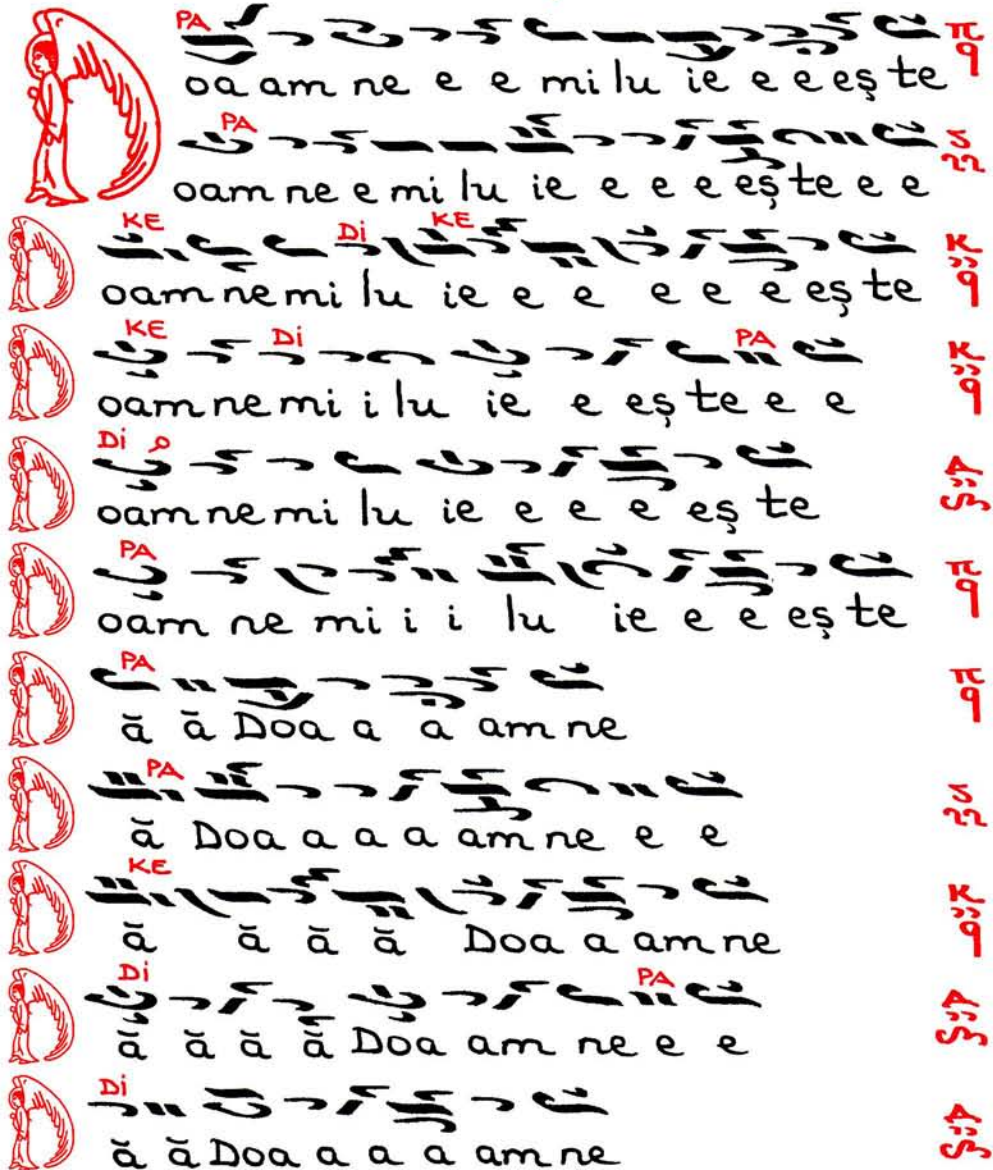 PA
oa am ne e e mi lu ie e e eş te
PA
oam ne e mi lu ie e e e eş te e e
KE Di KE
oam ne mi lu ie e e e e e eş te
KE Di PA
oam ne mi i lu ie e eş te e e
Di
oam ne mi lu ie e e e eş te
PA
oam ne mi i i lu ie e e eş te
PA
ă ă Doa a a am ne
PA
ă Doa a a a am ne e e
KE
ă ă ă ă Doa a am ne
Di PA
ă ă ă ă Doa am ne e e
Di
ă ă Doa a a a am ne